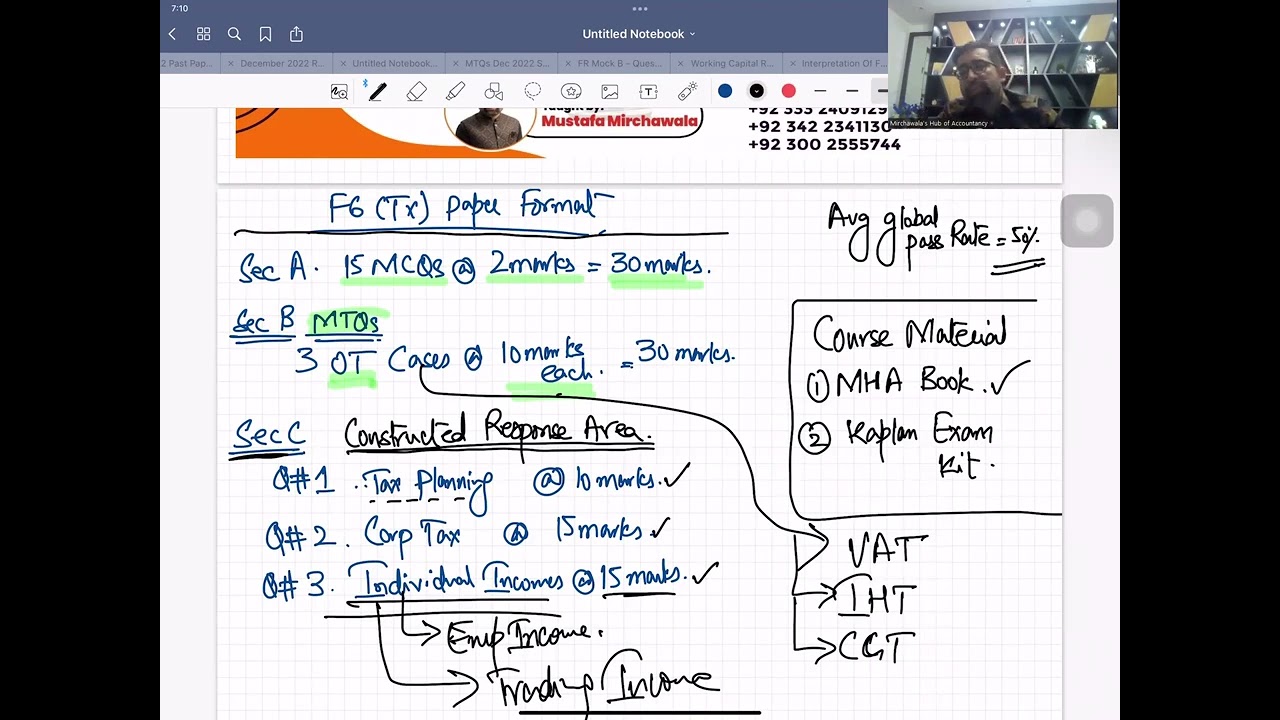 7:10
Untitled Notebook
2 Past Pap...
December 2022 R...
Untitled Notebook...
MTQs Dec 2022 S...
FR Mock B – Ques...
Working Capital R...
Interpretation Of F...
Mirchawala's Hub of Accountancy
Taught by:
Mustafa Mirchawala
+92 333 2409129
+92 342 2341130
+92 300 2555744
F6 (Tx) Paper Format
Avg global
pass Rate = 50%.
Sec A. 15 MCQs @ 2marks = 30 marks.
Sec B MTQs
3 OT Cases @ 10 marks each. = 30 marks.
Sec C Constructed Response Area.
Q#1 . Tax Planning @ 10 marks. ✓
Q# 2. Corp Tax @ 15 marks ✓
Q# 3. Individual Incomes @ 15 marks. ✓
Emp Income.
Trading Income
Course Material
① MHA Book. ✓
② Kaplan Exam
Kit.
VAT
IHT
CGT